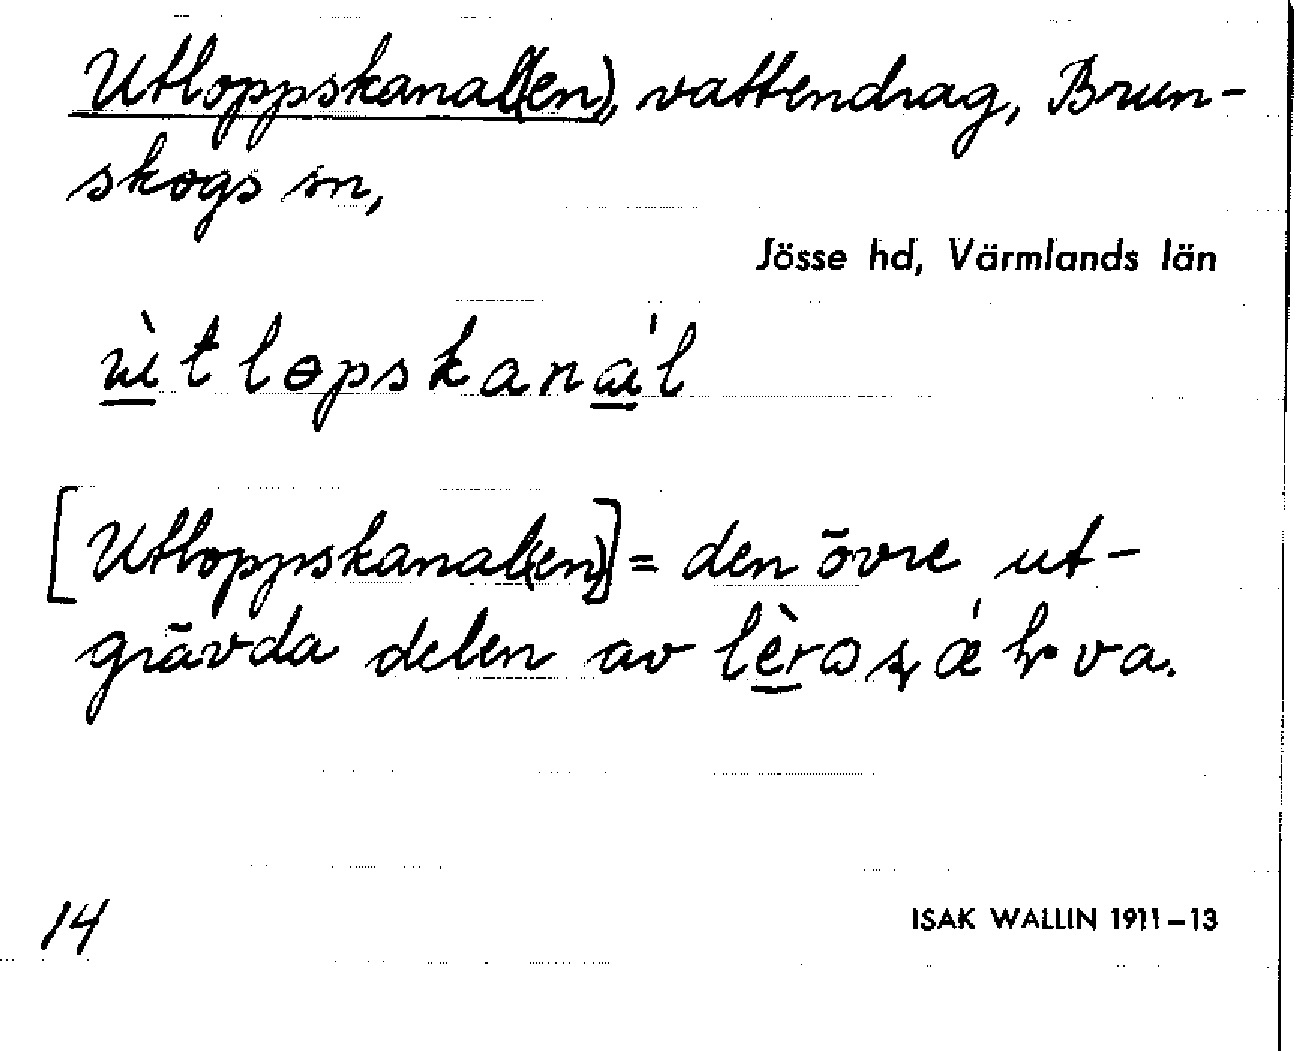 Utloppskanal(en), vattendrag, Brun-
skogs sn,
Jösse hd, Värmlands län
[Utloppskanal(en)] = den övre ut-
grävda delen av
14
ISAK WALLIN 1911–13